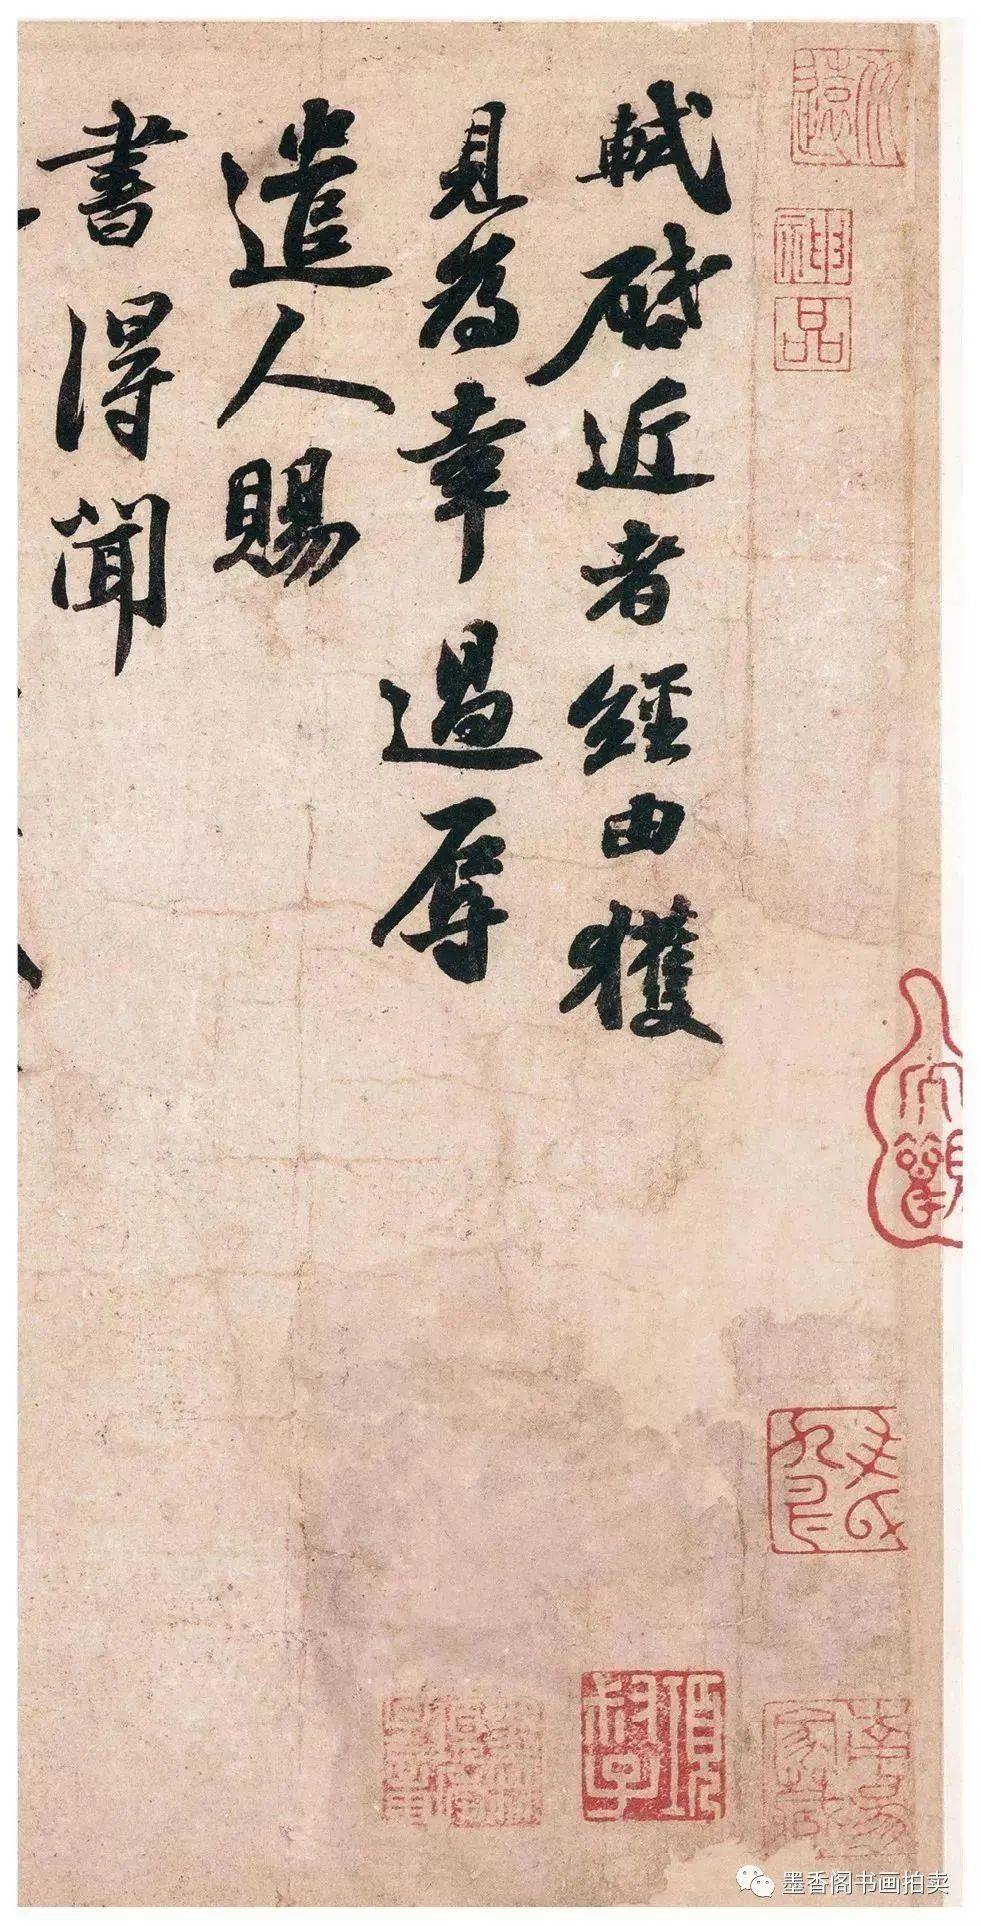 軾啓近者經由獲
見為幸過辱
遣人賜
書得聞
神品
墨香阁书画拍卖